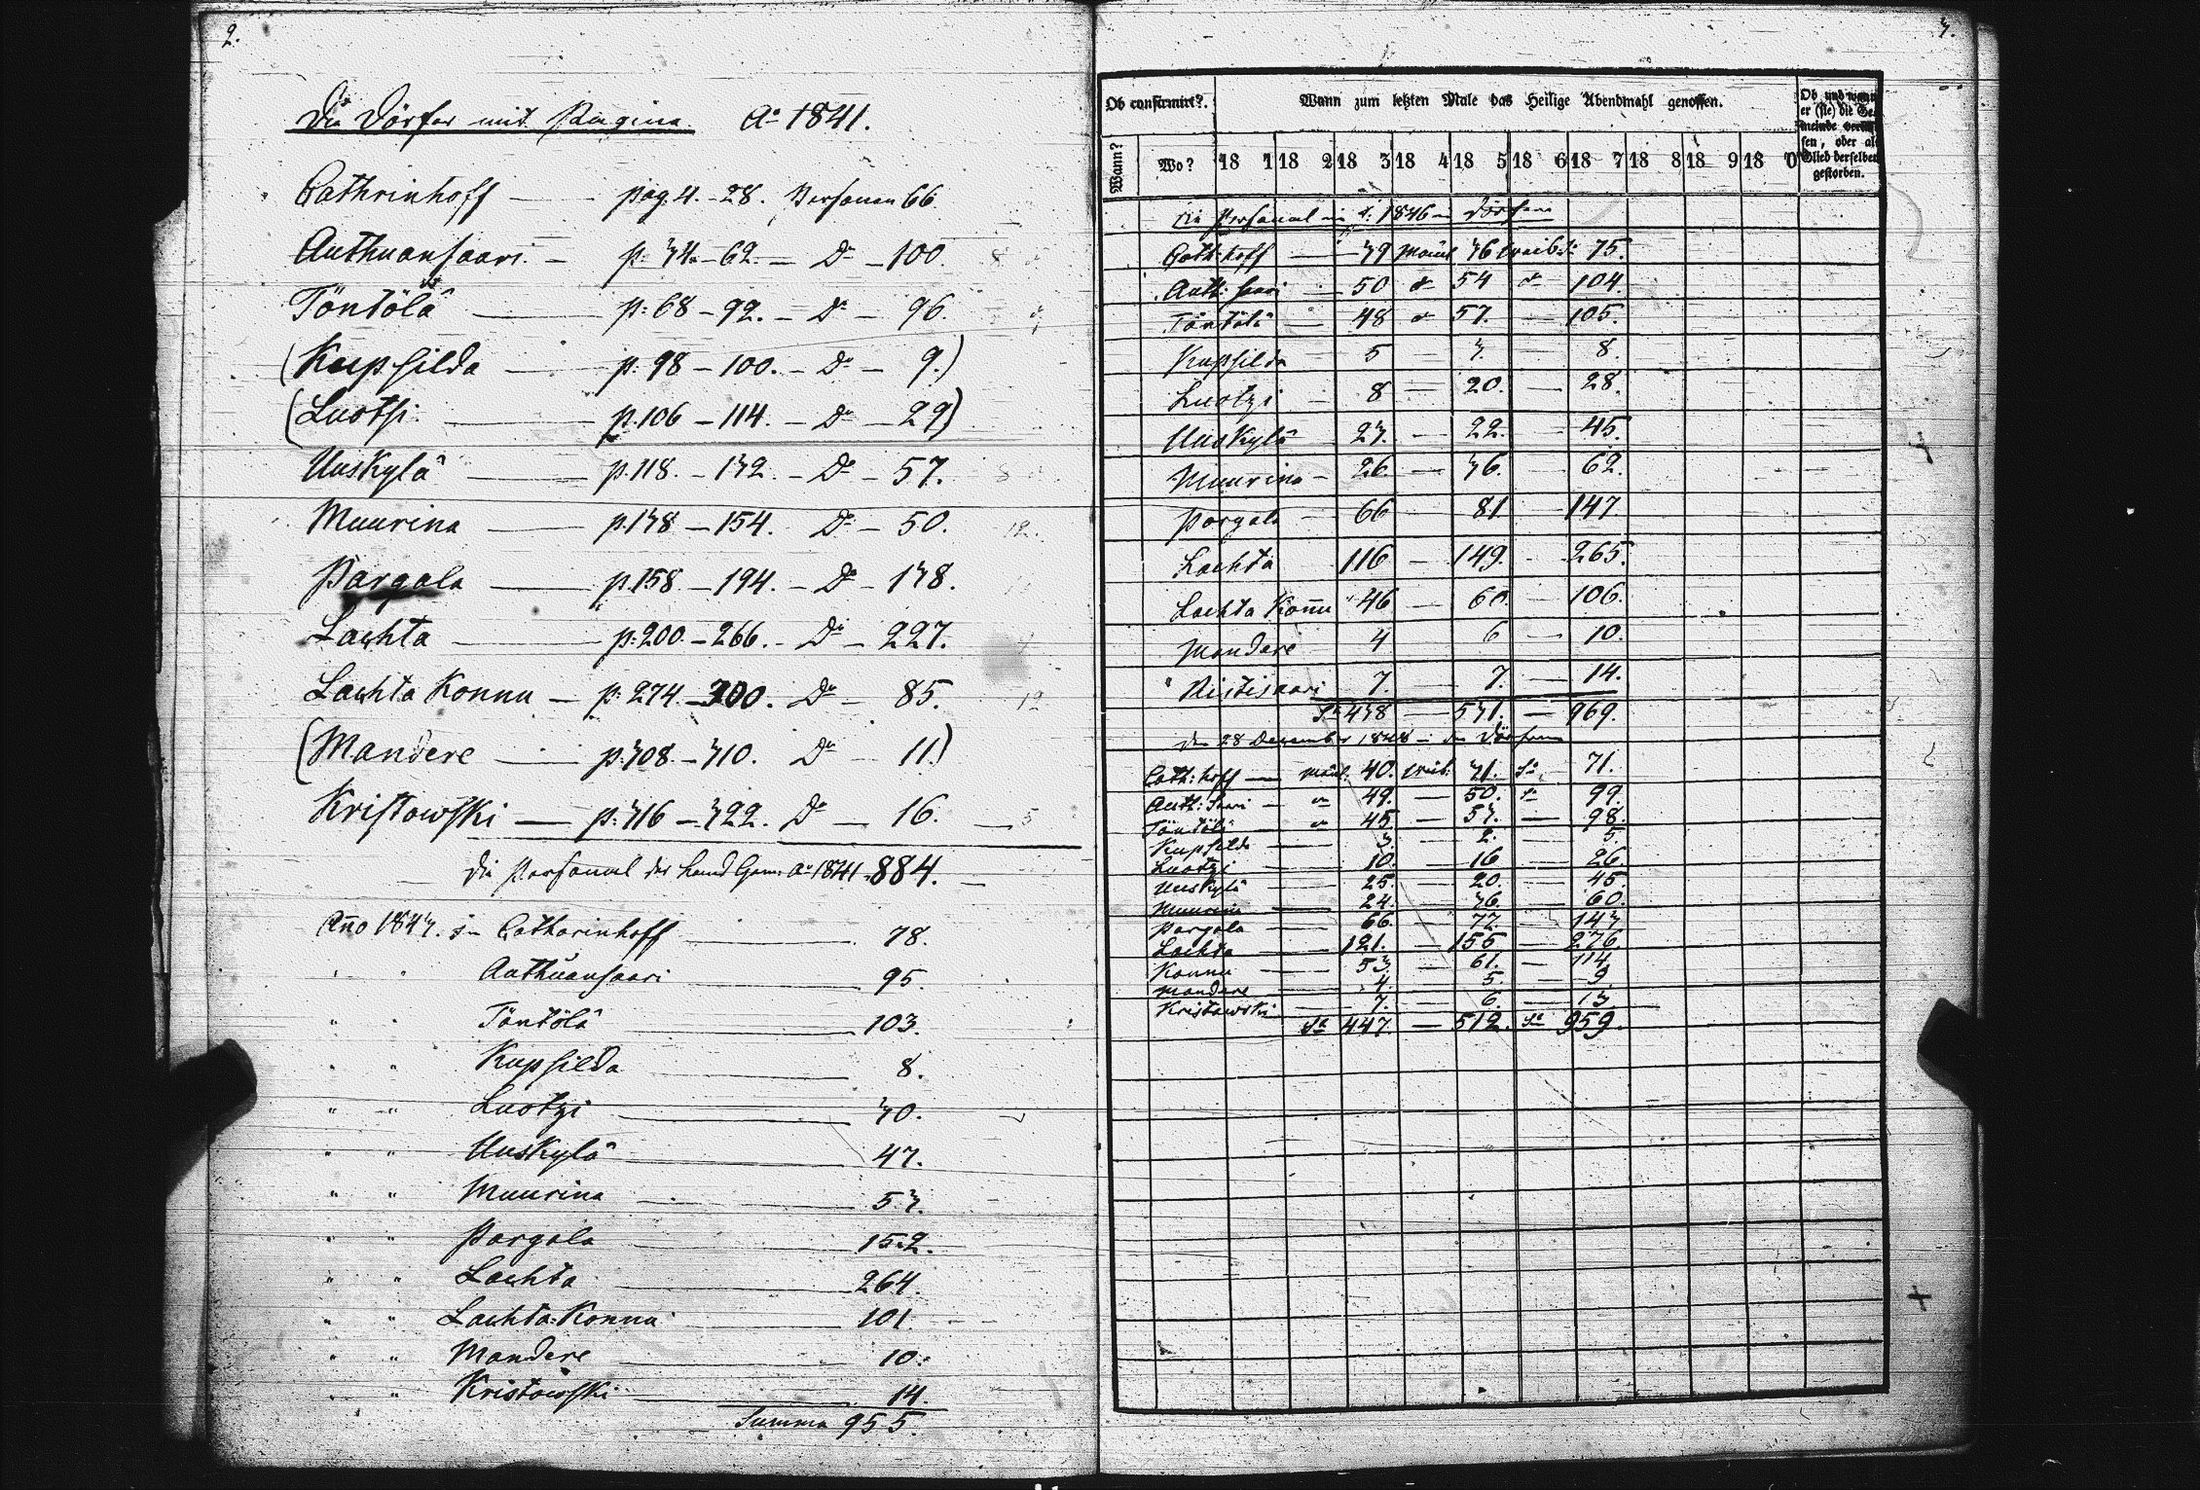 2.
Die Dörfer mit Pagina. Aº 1841.
Cathrinhoff — pag. 4. - 28. Personen 66.
Authuansaari. — p. 34. - 62. — Dº — 100.
Töntölä — p: 68 - 92. — Dº — 96.
(Kupsilda — p. 98 - 100. — Dº — 9.)
(Luotsi — p. 106 - 114. — Dº — 29)
Uuskylä — p. 118. - 132. — Dº — 57.
Muurina — p. 138 - 154. Dº — 50.
Pargala — p. 158 - 194. — Dº — 138.
Lachta — p: 200 - 266. — Dº — 227.
Lachta Konnu — p. 274. - 300. Dº — 85.
(Mandere — p. 308. - 310. Dº — 11.)
Kristowski — p. 316 - 322. Dº — 16.
Die Personal der Land Gem. Aº 1841 884.
Año 1843. in Catharinhoff — 78.
" " Authuansaari — 95.
" " Töntölä — 103.
" " Kupsilda — 8.
" " Luotzi — 30.
" " Uuskylä — 47.
" " Muurina — 53.
" " Pargala — 152.
" " Lachta — 264.
" " Lachta-Konnu — 101.
" " Mandere — 10.
" " Kristowski — 14.
Summa 955.
3.
Ob confirmirt?. Wann zum letzten Male das Heilige Abendmahl genossen. Ob und wann er (sie) die Gemeinde verlassen, oder als Glied derselben gestorben.
Wann? Wo? 18 1 18 2 18 3 18 4 18 5 18 6 18 7 18 8 18 9 18 0
Die Personal im J. 1846 in Dörfern
Cath: hoff — 39 Mänl 36 weibl: 75.
Auth: saari — 50 dº 54 dº 104.
Töntölä — 48 dº 57. — 105.
Kupsilda 5 — 3. — 8.
Luotzi — 8 — 20. — 28.
Uuskylä 23. — 22. — 45.
Muurina — 26. — 36. — 62.
Pargala — 66 — 81. — 147
Lachta 116 — 149. — 265.
Lachta Konnu 46 — 60. — 106.
Mandere — 4 6 — 10.
Ristisaari 7. — 7. — 14.
Sª 438 — 531. — 969.
den 28 December 1848 in den Dörfern
Cath: hoff — mänl: 40. weib: 31. Sª 71.
Auth: saari — dº 49. — 50. Sª 99.
Töntölä — dº 45. — 53. — 98.
Kupsilda — 3. — 2. — 5
Luotzi — 10. — 16 — 26.
Uuskylä — 25. — 20. — 45.
Muurina — 24. — 36. — 60.
Pargala — 66. — 77. — 143.
Lachta — 121. — 155 — 276.
Konnu — 53. — 61. — 114.
Mandere — 4. — 5. — 9.
Kristowski — 7. — 6. — 13.
Sª 447. — 512. Sª 959.